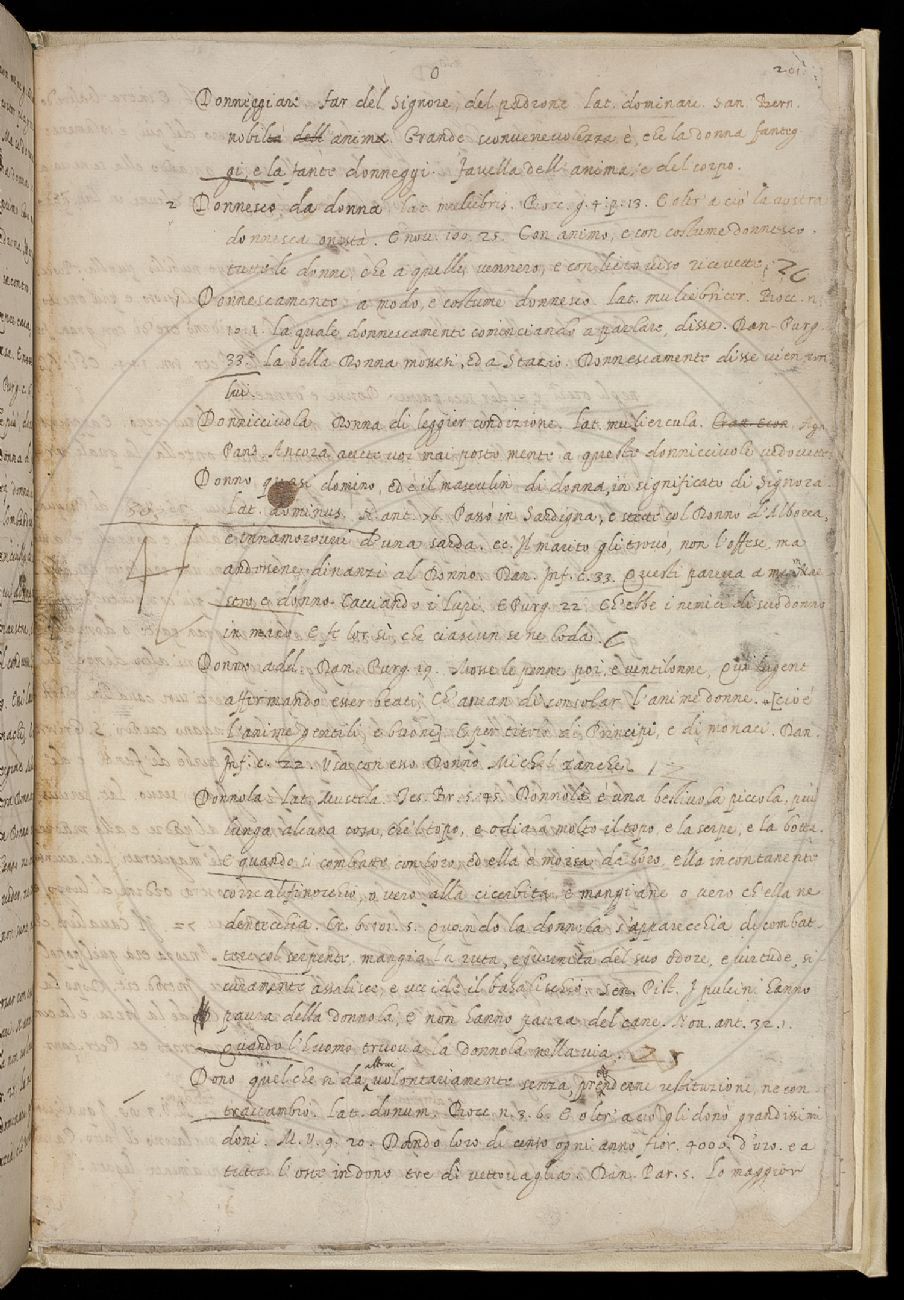 O
201
Donneggiare far del signore, del padrone lat. dominare. San. Bern.
nobiltà dell' anima. Grande sconvenevolezza è, che la donna fanteg
gi, e la fante donneggi. favella dell' anima, e del corpo.
2 Donnesco, da donna lat. muliebris. Bocc. g. 4. p. 13. E oltr' a ciò la vostra
donnesca onestà. E nov. 100. 25. Con animo, e con costume donnesco.
tutte le donne, che a quelle vennero, e con lieto viso ricevette, 26
Donnescamente a modo, e costume donnesco lat. muliebriter. Bocc. n.
10. 1. la quale donnescamente cominciando a parlare, disse. Dan. Purg.
33. la bella Donna mossesi, ed a Stazio. Donnescamente disse vien con
lui.
Donnicciuola Donna di leggier condizione. lat. muliercula. Agn.
Pand. Ancora avete voi mai posto mente a queste donnicciuole vedovette
Donno quasi domino, ed è il masculin di donna, in significato di Signora.
lat. dominus. N. ant. 76. Passò in Sardigna, e stette col Donno d'Alborea,
e innamorovvi d'una sarda. ec. Il marito gli trovò, non l'offese, ma
andossene dinanzi al Donno. Dan. Inf. c. 33. Questi pareva a me Mae
stro, e donno. Cacciando i lupi. E Purg. 22. Ch'ebbe i nemici di suo donno
in mano E fe lor sì, che ciascun se ne loda. 6
Donno add. Dan. Purg. 19. Mosse le penne poi, e ventilonne, Qui lugent
affermando esser beati, Ch' avran di consolar l'anime donne. [cioè
l'anime gentili, e buone] E per titolo di Principi, e di monaci. Dan.
Inf. c. 22. Usa con esso Donno Michel Zanche. 12
Donnola lat. Mustela. Tes. Br. 5. 45. Donnola è una bestiuola piccola, più
lunga alcuna cosa, che'l topo, e odia molto il topo, e la serpe, e la botta.
E quando si combatte con loro, ed ella è morsa da loro, ella incontanente
corre al finocchio, o vero alla cicerbita, e mangiane o vero ch'ella ne
dentecchia. Cr. 6. 101. 5. Quando la donnola s'apparecchia di combat
tere col serpente, mangia la ruta, e guernita del suo odore, e virtude, si
curamente assalisce, e uccide il basalischio. Sen. Pist. I pulcini hanno
paura della donnola, e non hanno paura del cane. Nov. ant. 32. 1.
Quando l'huomo truova la donnola nella via. 28
Dono quel che si dà altrui volontariamente senza prenderne restituzione, ne con
traccambio. lat. donum. Bocc. n. 3. 6. E oltr' a ciò gli donò grandissimi
doni. M. V. 9. 20. Dando loro di censo ogni anno fior. 4000. d'oro. e a
tutta l'oste in dono tre dì vettovaglia. Dan. Par. 5. Lo maggior